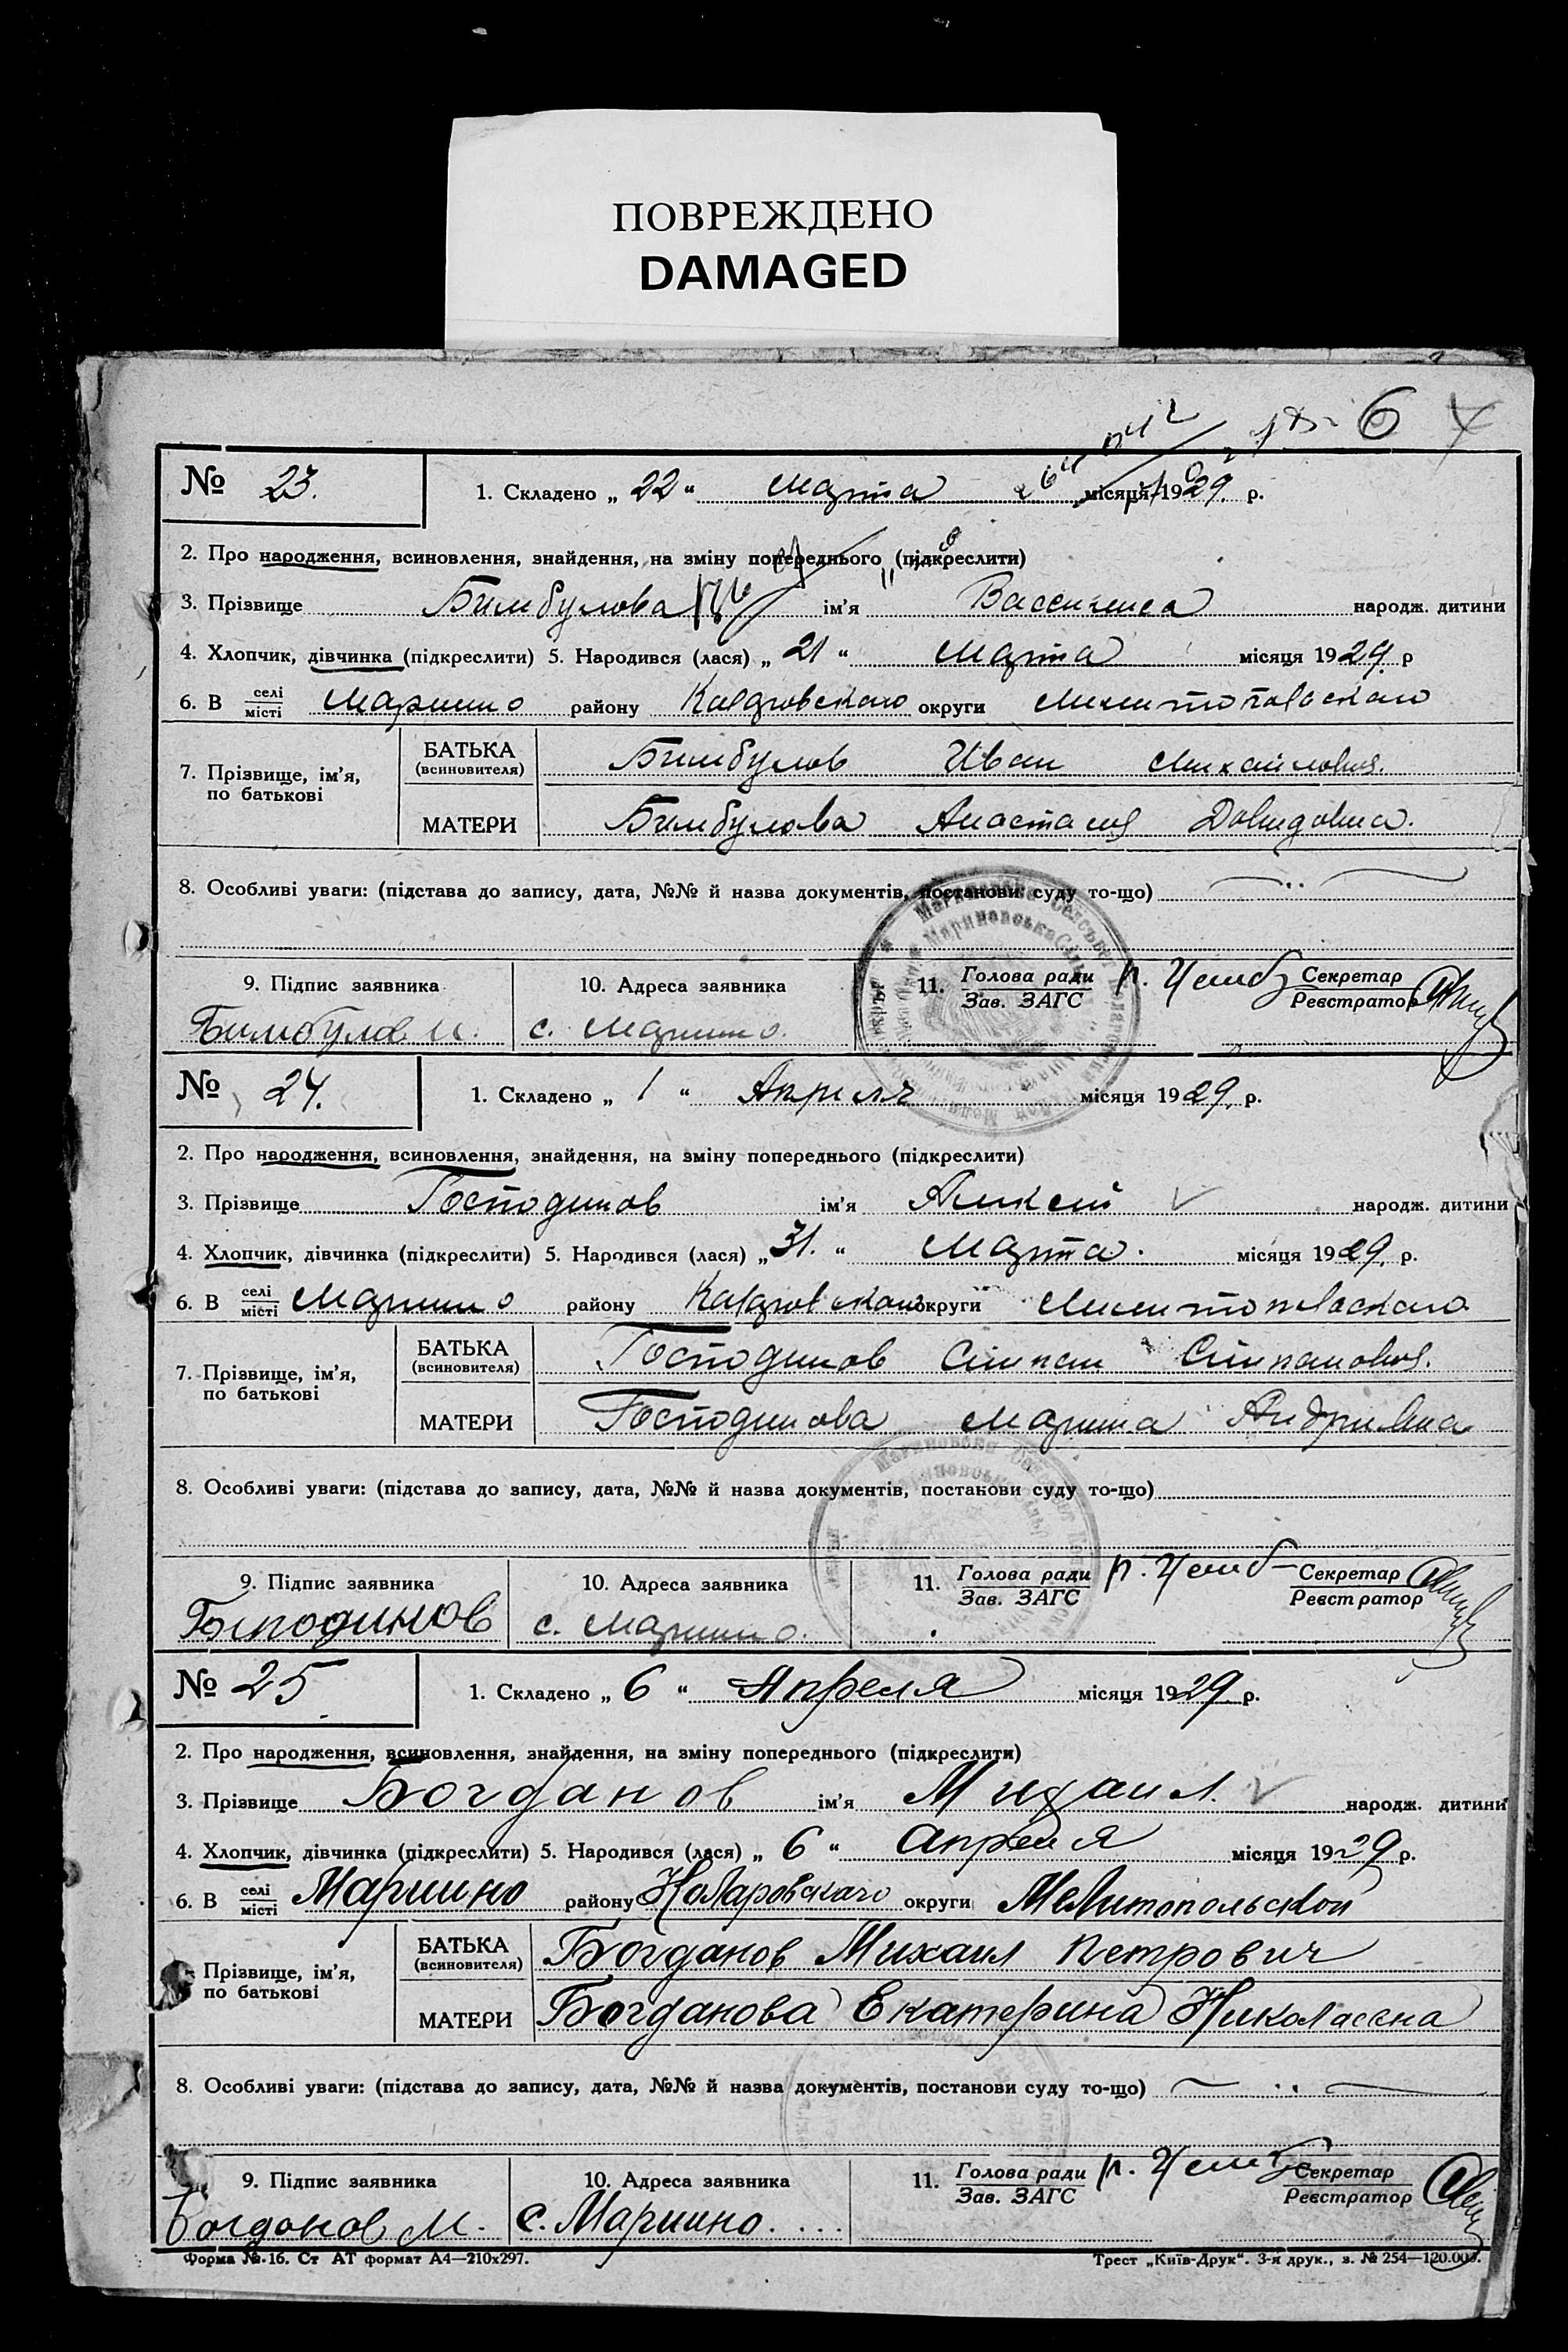 ПОВРЕЖДЕНО
DAMAGED
6
№ 23.
1. Складено „ 22 “ Марта місяця 1929. р.
2. Про народження, всиновлення, знайдення, на зміну попереднього (підкреслити)
3. Прізвище Бимбулова ім'я народж. дитини
4. Хлопчик, дівчинка (підкреслити) 5. Народився (лася) „ 21 “ Марта місяця 1929. р
6. В селі місті Марино району округи Мелитопольского
7. Прізвище, ім'я, по батькові
БАТЬКА (всиновителя) Бимбулов Иван Михайлович.
МАТЕРИ Бимбулова Анастасия Давидовна.
8. Особливі уваги: (підстава до запису, дата, №№ й назва документів, постанови суду то-що)
9. Підпис заявника
10. Адреса заявника
11. Голова ради Зав. ЗАГС
Секретар Реєстратор
Бимбулов И.
с. Марино.
№ 24.
1. Складено „ 1 “ Апреля місяця 1929. р.
2. Про народження, всиновлення, знайдення, на зміну попереднього (підкреслити)
3. Прізвище Господинов ім'я Алексей народж. дитини
4. Хлопчик, дівчинка (підкреслити) 5. Народився (лася) „ 31. “ Марта. місяця 1929. р.
6. В селі місті Марино району округи Мелитопольского
7. Прізвище, ім'я, по батькові
БАТЬКА (всиновителя) Господинов Степан Степанович.
МАТЕРИ Господинова Марина
8. Особливі уваги: (підстава до запису, дата, №№ й назва документів, постанови суду то-що)
9. Підпис заявника
10. Адреса заявника
11. Голова ради Зав. ЗАГС
Секретар Реєстратор
Господинов
с. Марино.
№ 25
1. Складено „ 6 “ Апреля місяця 1929 р.
2. Про народження, всиновлення, знайдення, на зміну попереднього (підкреслити)
3. Прізвище Богданов ім'я Михаил. народж. дитини
4. Хлопчик, дівчинка (підкреслити) 5. Народився (лася) „ 6 “ апреля місяця 1929 р.
6. В селі місті Мариино району округи Мелитопольской
Прізвище, ім'я, по батькові
БАТЬКА (всиновителя) Богданов Михаил Петрович
МАТЕРИ Богданова Екатерина Николаевна
8. Особливі уваги: (підстава до запису, дата, №№ й назва документів, постанови суду то-що)
9. Підпис заявника
10. Адреса заявника
11. Голова ради Зав. ЗАГС
Секретар Реєстратор
Богданов М.
с. Мариино.
Форма №.16. Ст АТ формат А4—210х297.
Трест „Київ-Друк“. 3-я друк., з. № 254—120.000.